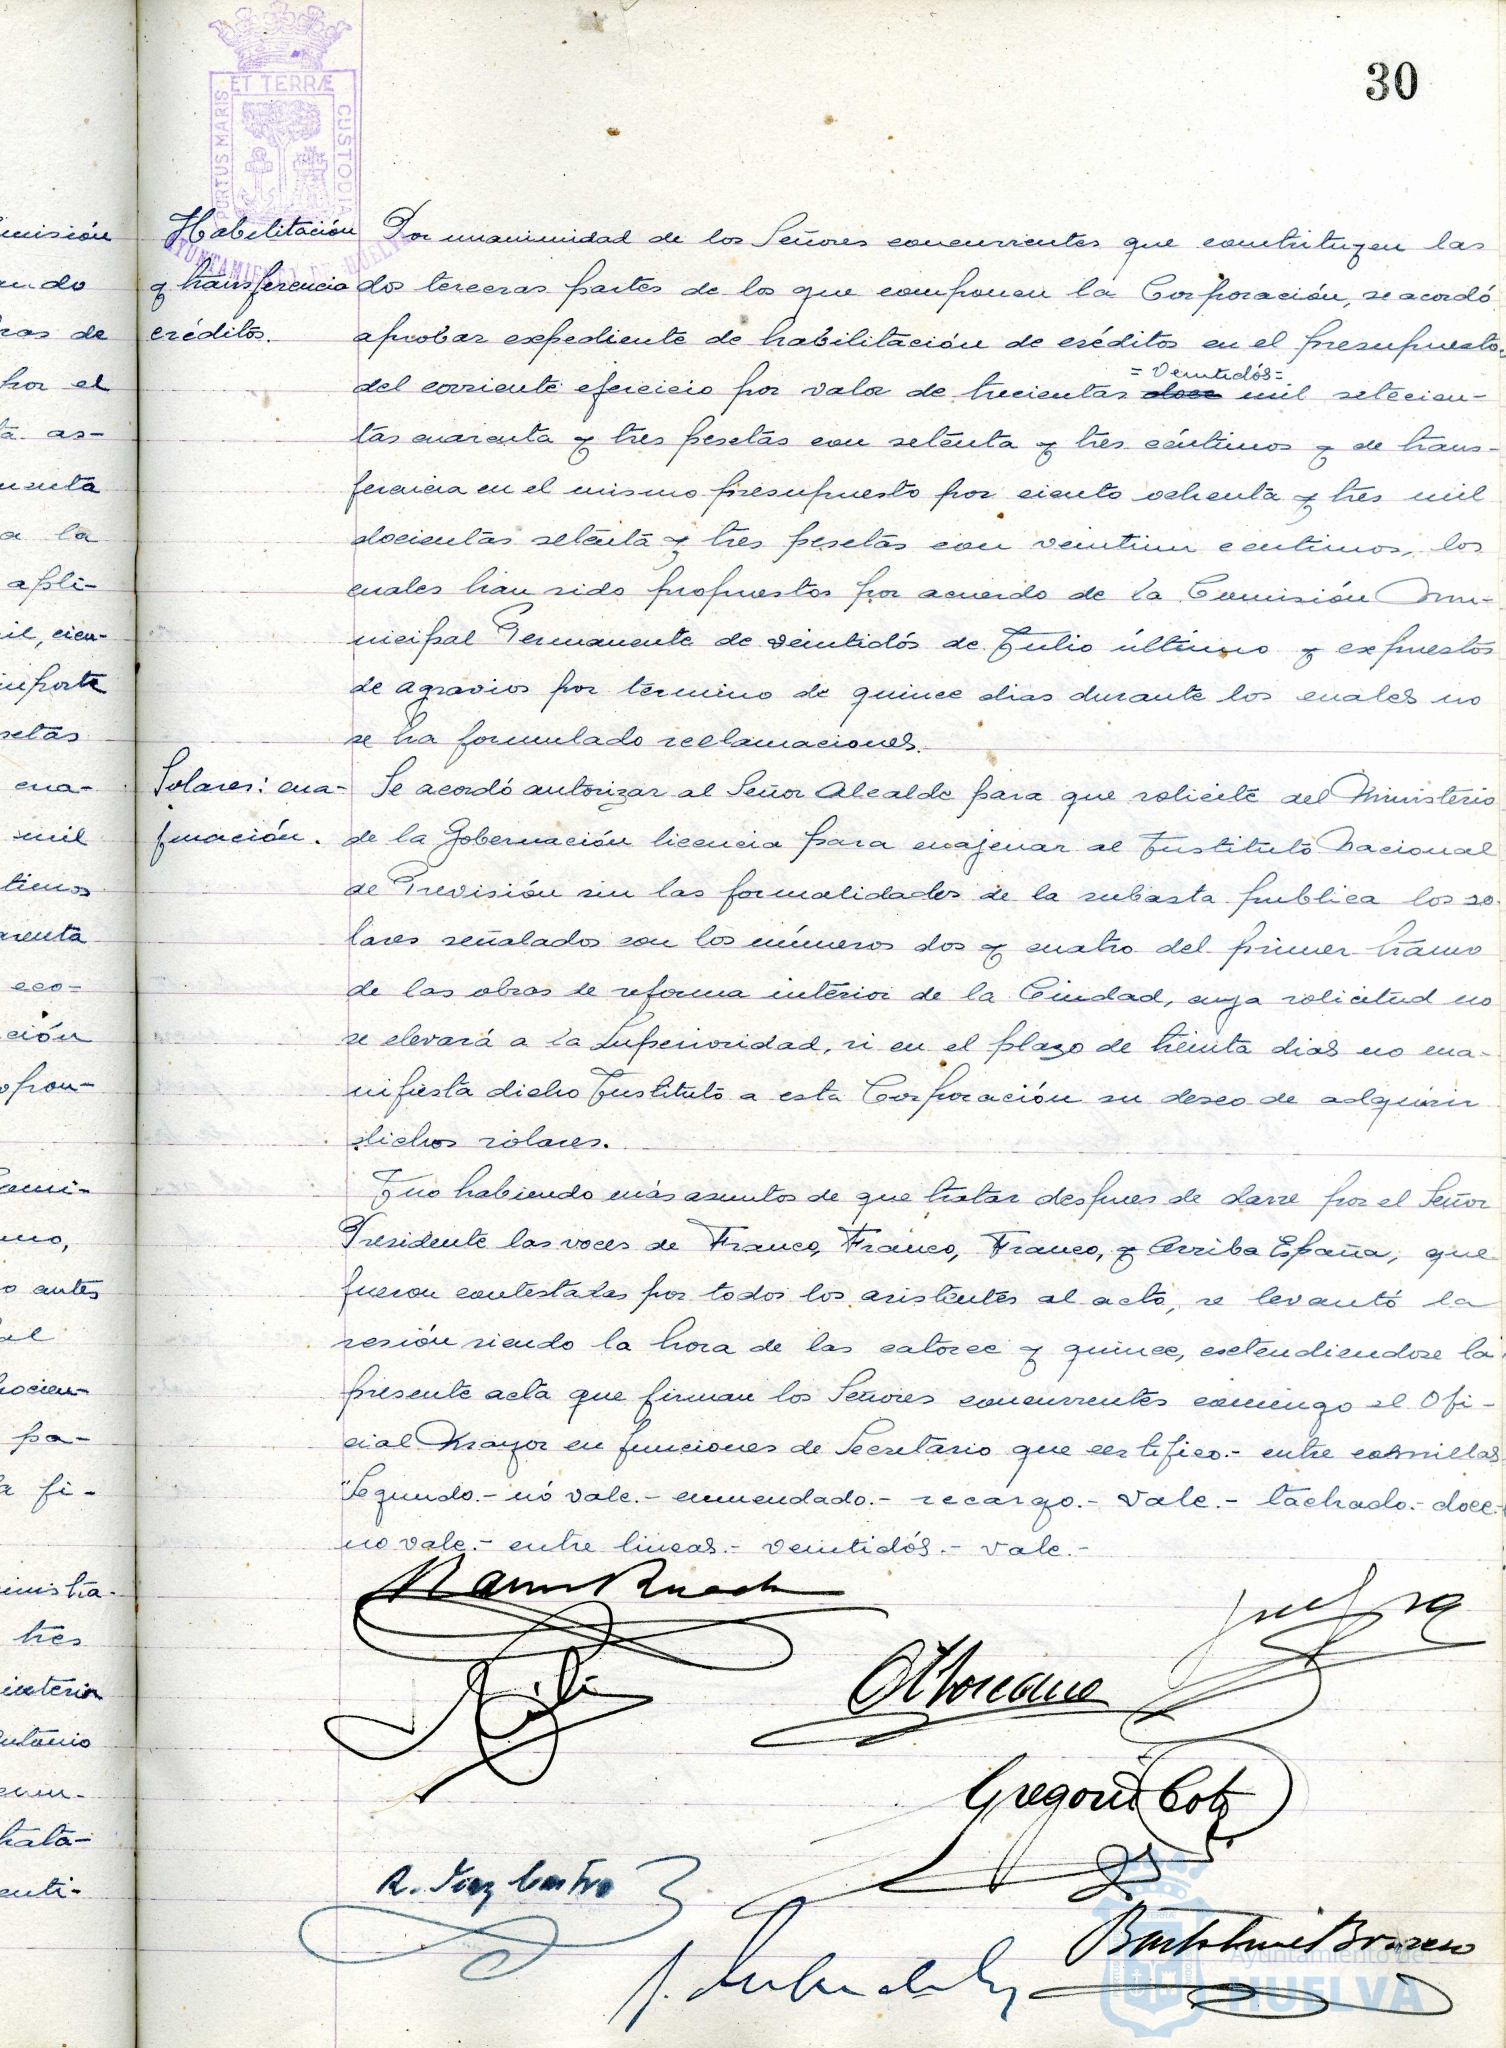 30
PORTUS MARIS ET TERRÆ CUSTODIA
AYUNTAMIENTO DE HUELVA
Habilitación
y transferencia
créditos.
Por unanimidad de los Señores concurrentes que contituyen las
dos terceras partes de los que componen la Corporación, se acordó
aprobar expediente de habilitación de créditos en el presupuesto
= Veintidós=
del corriente ejercicio por valor de trecientas doce mil setecien-
tas cuarenta y tres pesetas con setenta y tres céntimos y de trans-
ferencia en el mismo presupuesto por ciento ochenta y tres mil
docientas setenta y tres pesetas con veintiun centimos, los
cuales han sido propuestos por acuerdo de la Comisión Mu-
nicipal Permanente de veintidós de Julio último y expuestos
de agravios por termino de quince dias durante los cuales no
se ha formulado reclamaciones.
Solares: ena-
jenación.
Se acordó autorizar al Señor Alcalde para que solicite del Ministerio
de la Gobernación licencia para enajenar al Instituto Nacional
de Previsión sin las formalidades de la subasta publica los so-
lares señalados con los números dos y cuatro del primer tramo
de las obras de reforma interior de la Ciudad, cuya solicitud no
se elevará a la Superioridad, si en el plazo de treinta dias no ma-
nifiesta dicho Instituto a esta Corporación su deseo de adquirir
dichos solares.
Y no habiendo más asuntos de que tratar despues de darse por el Señor
Presidente las voces de Franco, Franco, Franco, y Arriba España, que
fueron contestadas por todos los asistentes al acto, se levantó la
sesión siendo la hora de las catorce y quince, extendiendose la
presente acta que firman los Señores concurrentes conmigo el Ofi-
cial Mayor en funciones de Secretario que certifico.- entre comillas
"Segundo.- nó vale.- enmendado.- recargo.- vale.- tachado.- doce.-
no vale.- entre lineas.- veintidós.- vale.-
Gregorio
R. Díaz Castro
Bartolomé
Ayuntamiento de
HUELVA
misión
ando
ras de
por el
ta as-
a la
apli-
il, cien-
importe
setas
ena-
mil
timos
arenta
eco-
ción
o antes
al
pa-
a fi-
inistra-
tres
interior
Antonio
trata-